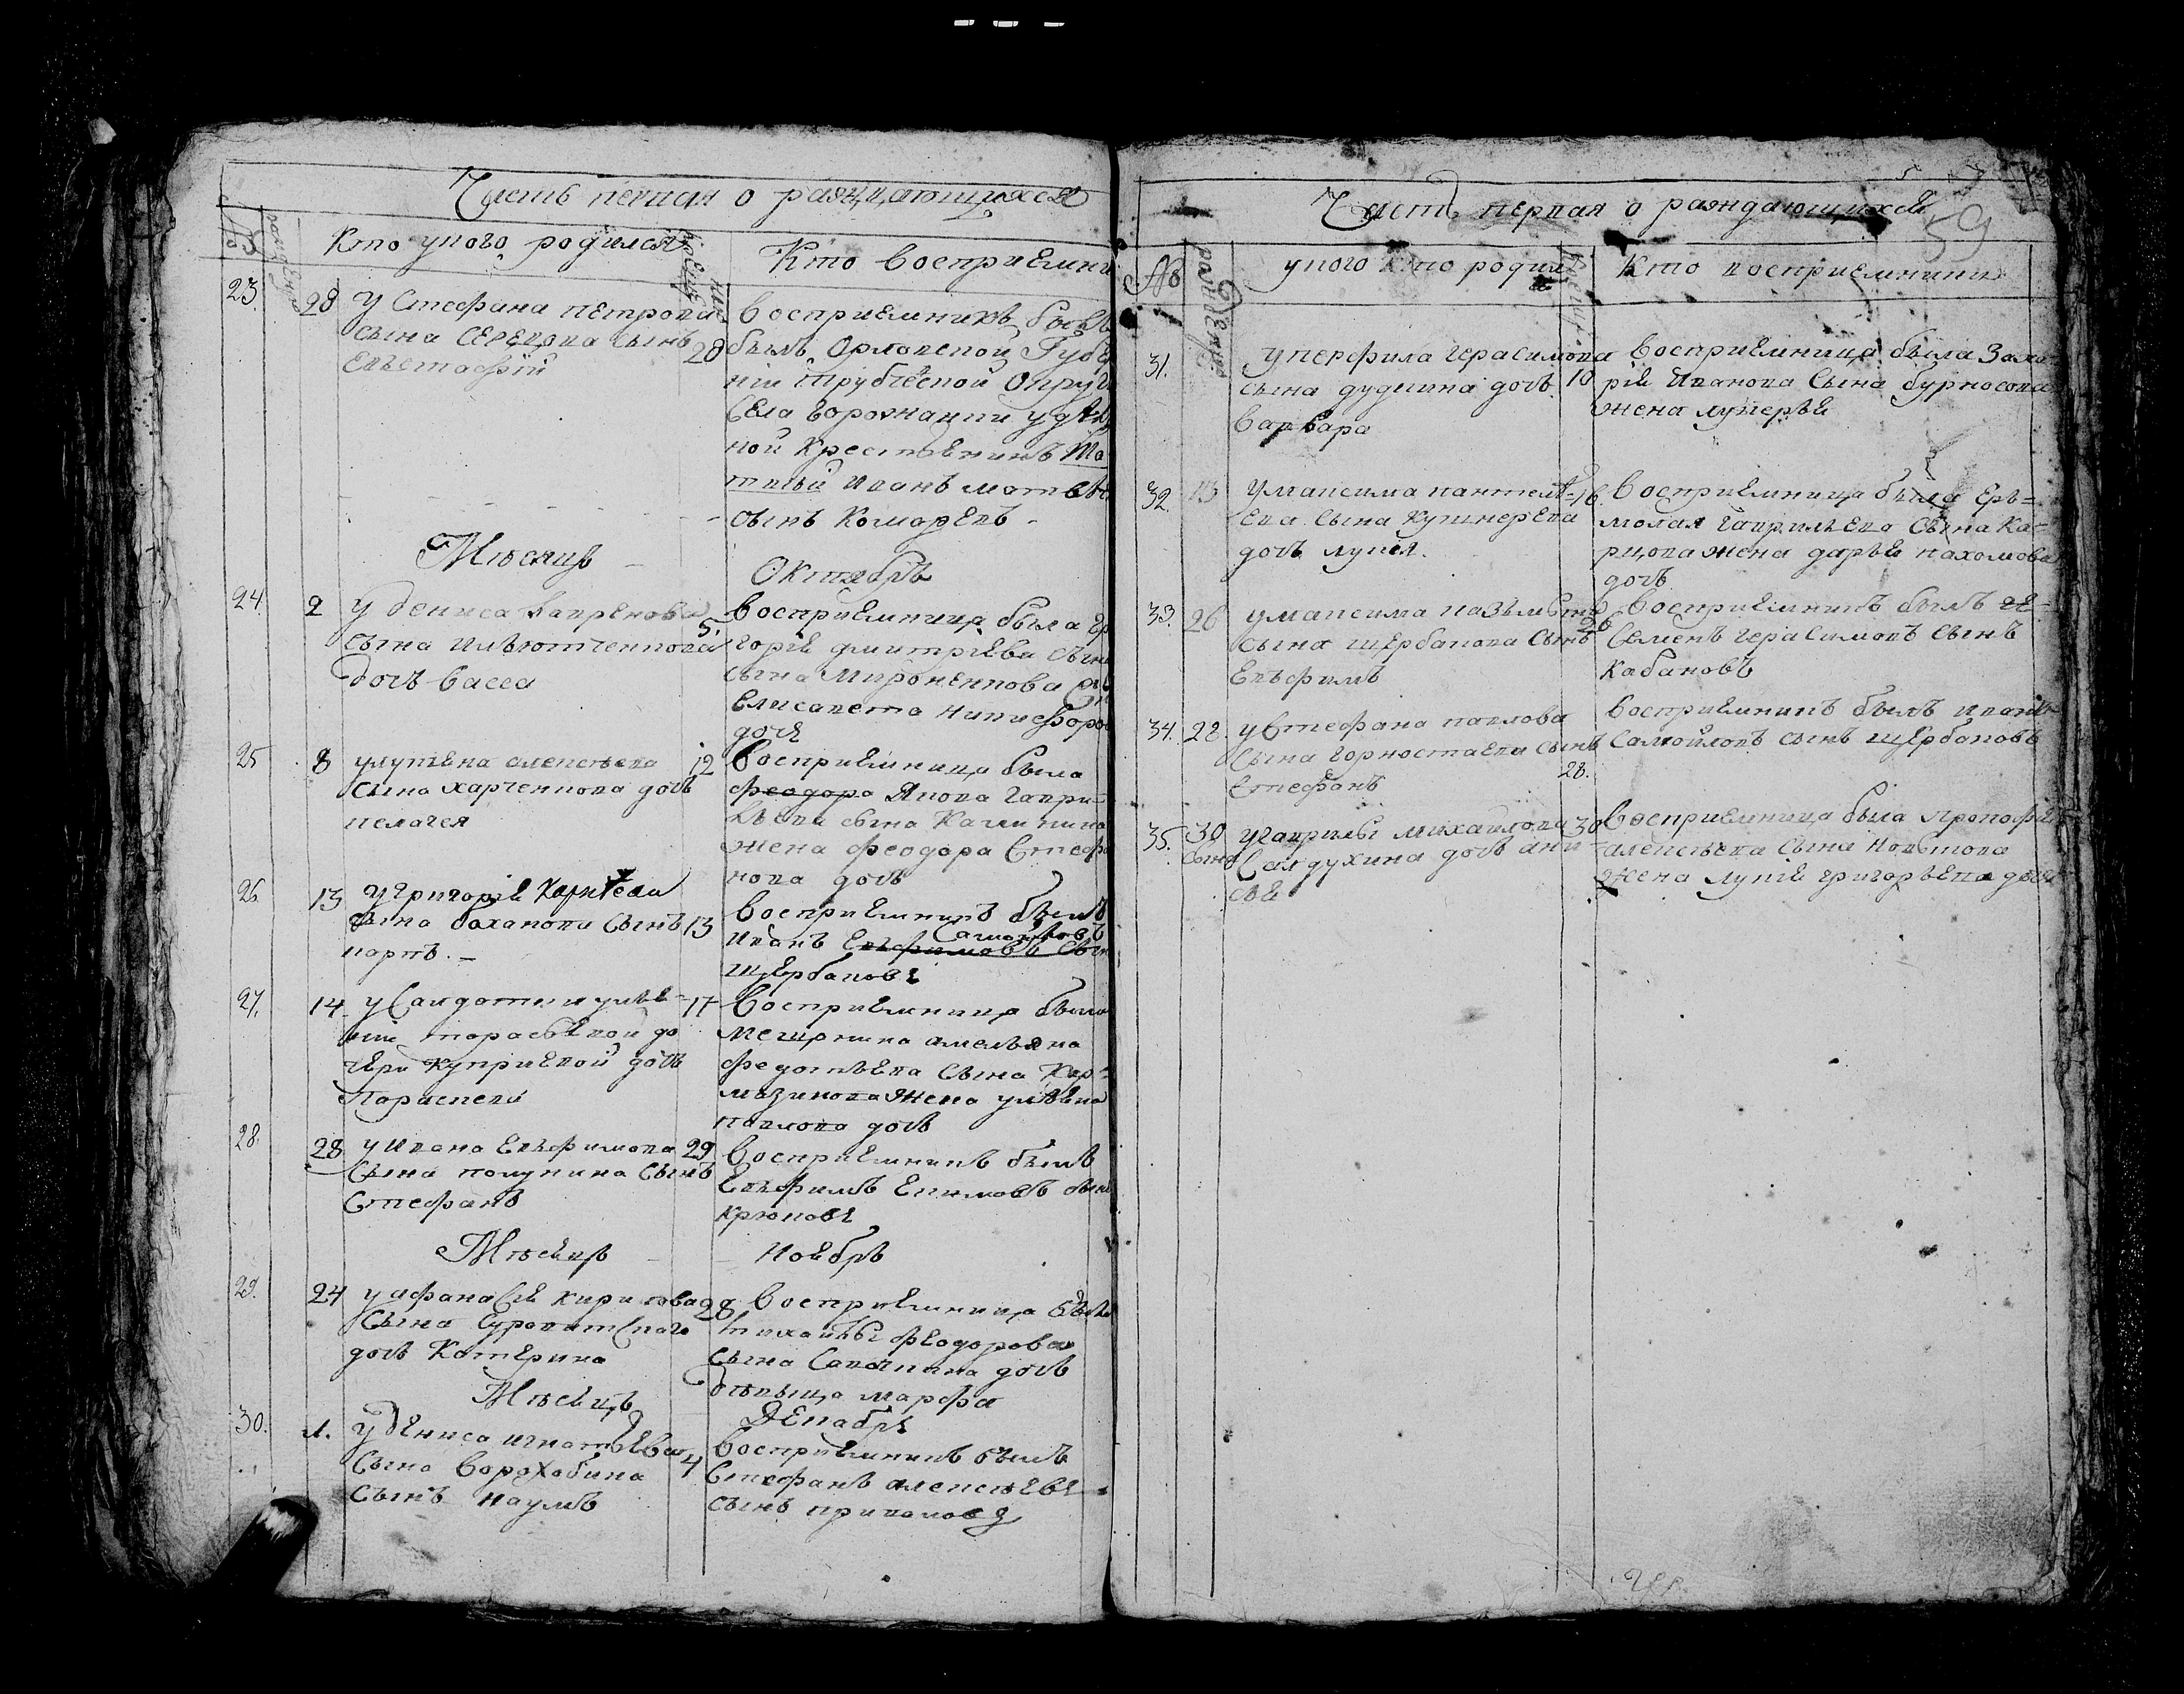 Часть первая о раждающихся
№
рожденіе
Кто у кого родился
крещеніе
Кто восприемни
23.
28
У Стефана петрова
сына Серецова сынъ
Евъстафій
28
Восприемникъ
былъ Орловской Губе
ніи Трубчевской Округи
Села Ворожанки удѣль
ной Крестьенинъ
Иванъ
сынъ Комаревъ
Мѣсяцъ
Октябрь
24.
2
у дениса лавренова
сына
дочь васса
5.
Восприемница была гри
горія дмитріева
сына Мироненкова
Елисавета никифоров
дочь
25
8
улукіяна алексѣева
сына харченкова дочь
пелагея
12
Восприемница была
феодора Якова Гаври
лѣева сына Калинина
жена феодора Стефа
нова дочь
26.
13
У григорія
сына баханова сынъ
марпъ
13
Восприемникъ былъ
Самойловъ
Иванъ Евъфимовъ сын
щербаковъ
27.
14
у салдатки улія-
ніи тарасьевой до
чери купріевой дочь
Параскева
17
Восприемница была
Мещанина амельяна
федотьева сына Кар-
мазинова жена уліяна
павлова дочь
28.
28
у Ивана Евъфимова
сына полунина сынъ
Стефанъ
29
Восприемникъ былъ
Евъфимъ Екимовъ сынъ
крюковъ
Мѣсяцъ
Ноябрь
29.
24
у афанасія кирилова
сына Суровитскаго
дочь Катерина
28
Восприемница была
михайлы феодорова
сына Савочкина дочь
дѣвица марфа
Мѣсяцъ
Декабрь
30.
1.
У дениса игнатьева
сына ворохобина
сынъ наумъ
4
Восприемникъ былъ
Стефанъ алексѣевъ
сынъ приваловъ
Часть первая о раждающихся
59
№
рожденіе
у кого кто родил
ся
Кто восприемники
31.
у перфила герасимова
сына дудкина дочь
варвара
10
Восприемница была Заха
ріе Иванова сына бурносова
жена лукерья
32.
13
Умаксима пантеле-
ева сына кушнерева
дочь лукія.
16.
Восприемница была Ерь-
молая гаврильева сына Ка-
рцова жена дарья пахомова
дочь
33.
26
умаксима
сына щербакова сынъ
Евъфимъ
26
Восприемникъ былъ
Семенъ герасимовъ сынъ
Кабановъ
34.
28.
у Стефана павлова
сына горностаева сынъ
Стефанъ
28.
Восприемникъ былъ иванъ
Самойловъ сынъ щербаковъ
35.
30
у гаврилы михайлова
сына Салдухина дочь ани-
сья
30
Восприемница была прокофія
алексѣева сына Новикова
жена лукія григорьева дочь